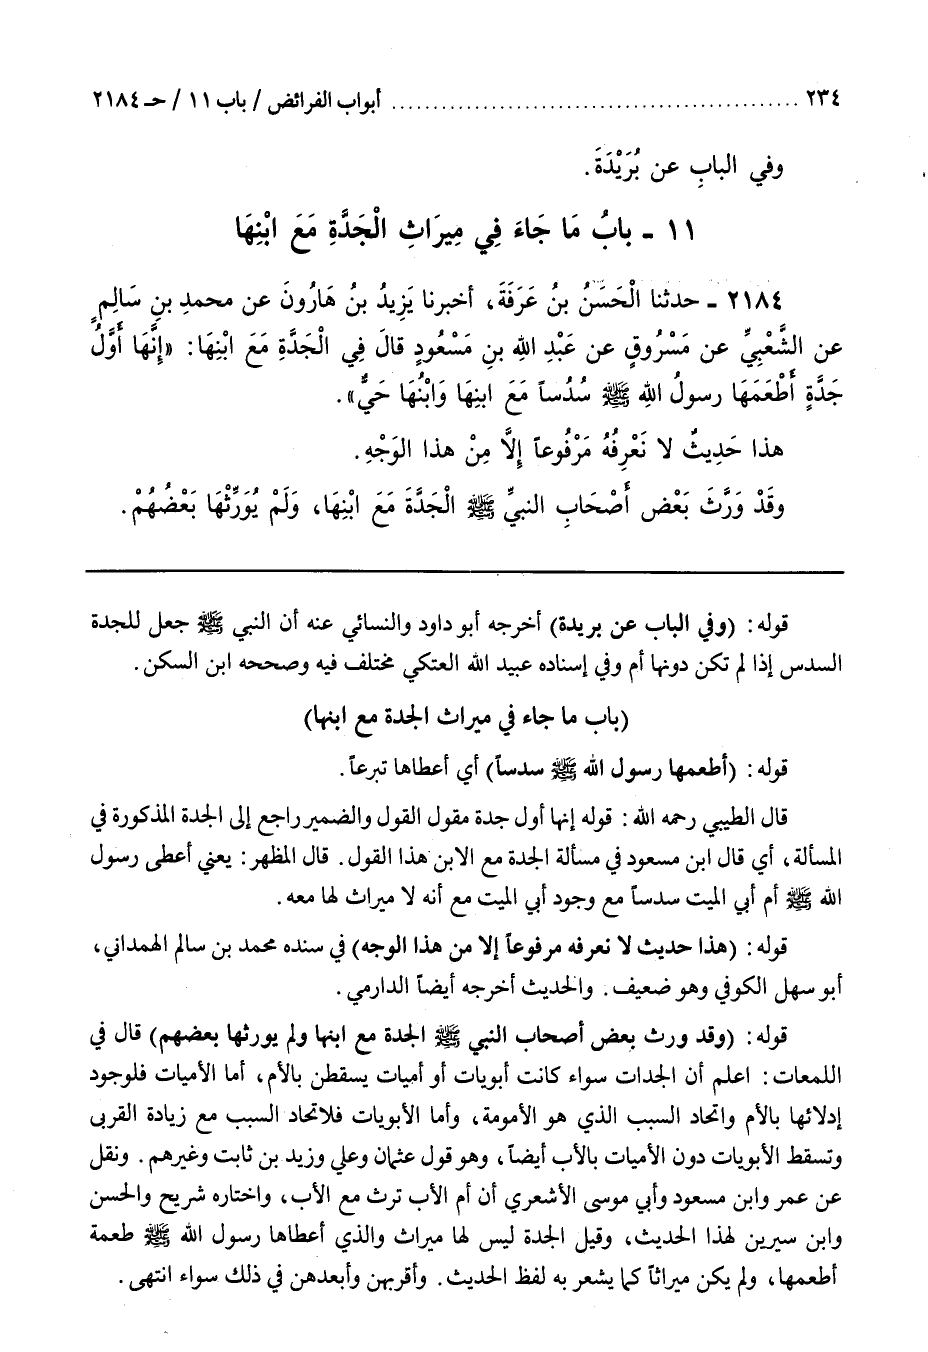 ٢٣٤ ................................................ أبواب الفرائض / باب ١١ / حـ ٢١٨٤
وفي البابِ عن بُرَيْدَةَ.
١١ ـ بابُ مَا جَاءَ فِي مِيرَاثِ الْجَدَّةِ مَعَ ابْنِهَا
٢١٨٤ ـ حدثنا الْحَسَنُ بنُ عَرَفَةَ، أخبرنا يَزِيدُ بنُ هَارُونَ عن محمدِ بنِ سَالِمٍ
عن الشَّعْبِيِّ عن مَسْرُوقٍ عن عَبْدِ اللهِ بنِ مَسْعُودٍ قالَ فِي الْجَدَّةِ مَعَ ابْنِهَا: «إنَّهَا أَوَّلُ
جَدَّةٍ أَطْعَمَهَا رسولُ اللهِ ﷺ سُدُساً مَعَ ابنِهَا وَابْنُهَا حَيٌّ».
هذا حَدِيثٌ لا نَعْرِفُهُ مَرْفُوعاً إلَّا مِنْ هذا الوَجْهِ.
وقَدْ وَرَّثَ بَعْض أَصْحَابِ النبيِّ ﷺ الْجَدَّةَ مَعَ ابْنِهَا، وَلَمْ يُوَرِّثْهَا بَعْضُهُمْ.
قوله: (وفي الباب عن بريدة) أخرجه أبو داود والنسائي عنه أن النبي ﷺ جعل للجدة
السدس إذا لم تكن دونها أم وفي إسناده عبيد الله العتكي مختلف فيه وصححه ابن السكن.
(باب ما جاء في ميراث الجدة مع ابنها)
قوله: (أطعمها رسول الله ﷺ سدساً) أي أعطاها تبرعاً.
قال الطيبي رحمه الله: قوله إنها أول جدة مقول القول والضمير راجع إلى الجدة المذكورة في
المسألة، أي قال ابن مسعود في مسألة الجدة مع الابن هذا القول. قال المظهر: يعني أعطى رسول
الله ﷺ أم أبي الميت سدساً مع وجود أبي الميت مع أنه لا ميراث لها معه.
قوله: (هذا حديث لا نعرفه مرفوعاً إلا من هذا الوجه) في سنده محمد بن سالم الهمداني،
أبو سهل الكوفي وهو ضعيف. والحديث أخرجه أيضاً الدارمي.
قوله: (وقد ورث بعض أصحاب النبي ﷺ الجدة مع ابنها ولم يورثها بعضهم) قال في
اللمعات: اعلم أن الجدات سواء كانت أبويات أو أميات يسقطن بالأم، أما الأميات فلوجود
إدلائها بالأم واتحاد السبب الذي هو الأمومة، وأما الأبويات فلاتحاد السبب مع زيادة القربى
وتسقط الأبويات دون الأميات بالأب أيضاً، وهو قول عثمان وعلي وزيد بن ثابت وغيرهم. ونقل
عن عمر وابن مسعود وأبي موسى الأشعري أن أم الأب ترث مع الأب، واختاره شريح والحسن
وابن سيرين لهذا الحديث، وقيل الجدة ليس لها ميراث والذي أعطاها رسول الله ﷺ طعمة
أطعمها، ولم يكن ميراثاً كما يشعر به لفظ الحديث. وأقربهن وأبعدهن في ذلك سواء انتهى.